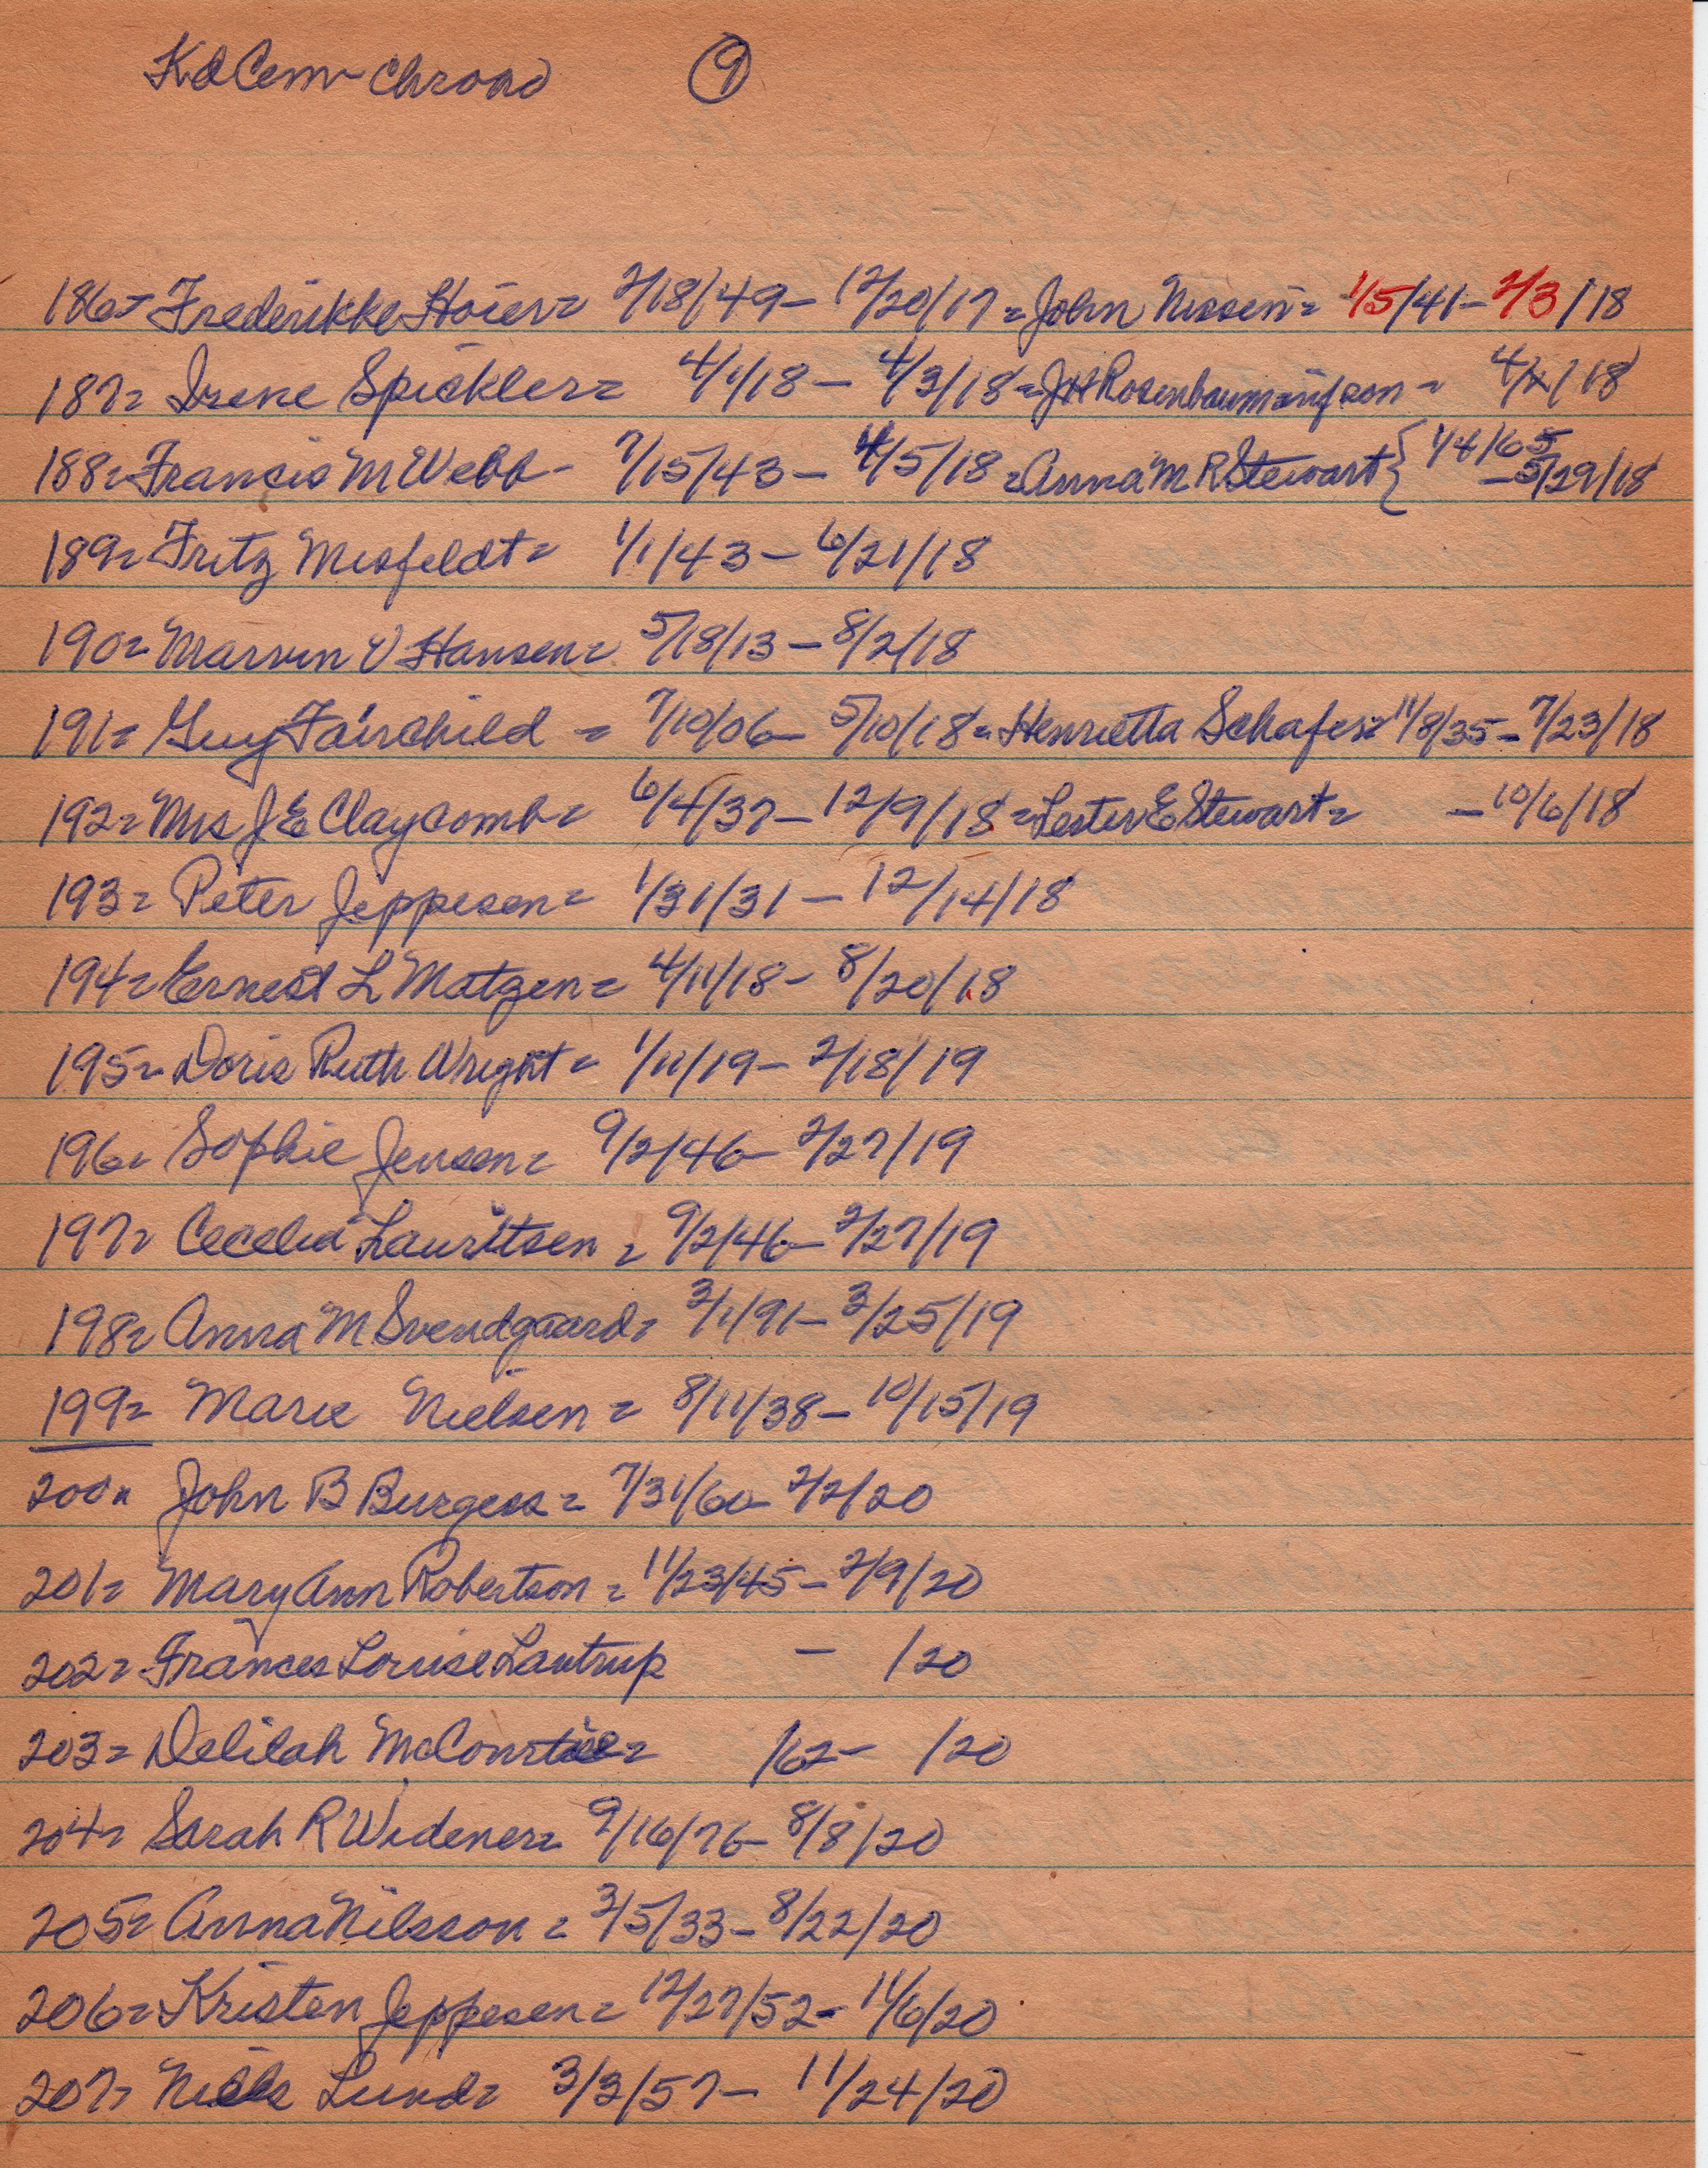 Kd Cem - Chrono 9
186= Frederikke Hoier= 2/18/49 - 12/20/17 = John Nissen= 1/5/41 - 2/3/18
187= Irene Spickler= 4/1/18 - 4/3/18 = J H Rosenbaum inf son = 4/4/18
188= Francis M Webb - 7/15/43 - 4/5/18 = Anna M R Stewart { 1/4/65 - 5/29/18
189= Fritz Misfeldt= 1/1/43 - 6/21/18
190= Marvin V Hansen= 5/18/13 - 8/2/18
191= Guy Fairchild = 7/10/06 - 5/10/18 = Henrietta Schafer= 11/8/35 - 7/23/18
192= Mrs J E Claycomb= 6/4/37 - 12/9/18 = Lester E Stewart= - 10/6/18
193= Peter Jeppesen= 1/31/31 - 12/14/18
194= Ernest L Matzen= 4/11/18 - 8/20/18
195= Doris Ruth Wright= 1/11/19 - 2/18/19
196= Sophie Jensen= 9/2/46 - 2/27/19
197= Cecelia Lauritsen = 9/2/46 - 2/27/19
198= Anna M Svendgaard= 3/1/91 - 3/25/19
199= Marie Nielsen = 8/11/38 - 10/15/19
200= John B Burgess= 7/31/60 - 2/2/20
201= Mary Ann Robertson = 11/23/45 - 2/9/20
202= Frances Louise Lautrup - /20
203= Delilah McCourtie= /62 - /20
204= Sarah R Widener= 9/16/76 - 8/8/20
205= Anna Nilsson = 3/5/33 - 8/22/20
206= Kristen Jeppesen= 12/27/52 - 11/6/20
207= Niels Lund= 3/3/57 - 11/24/20